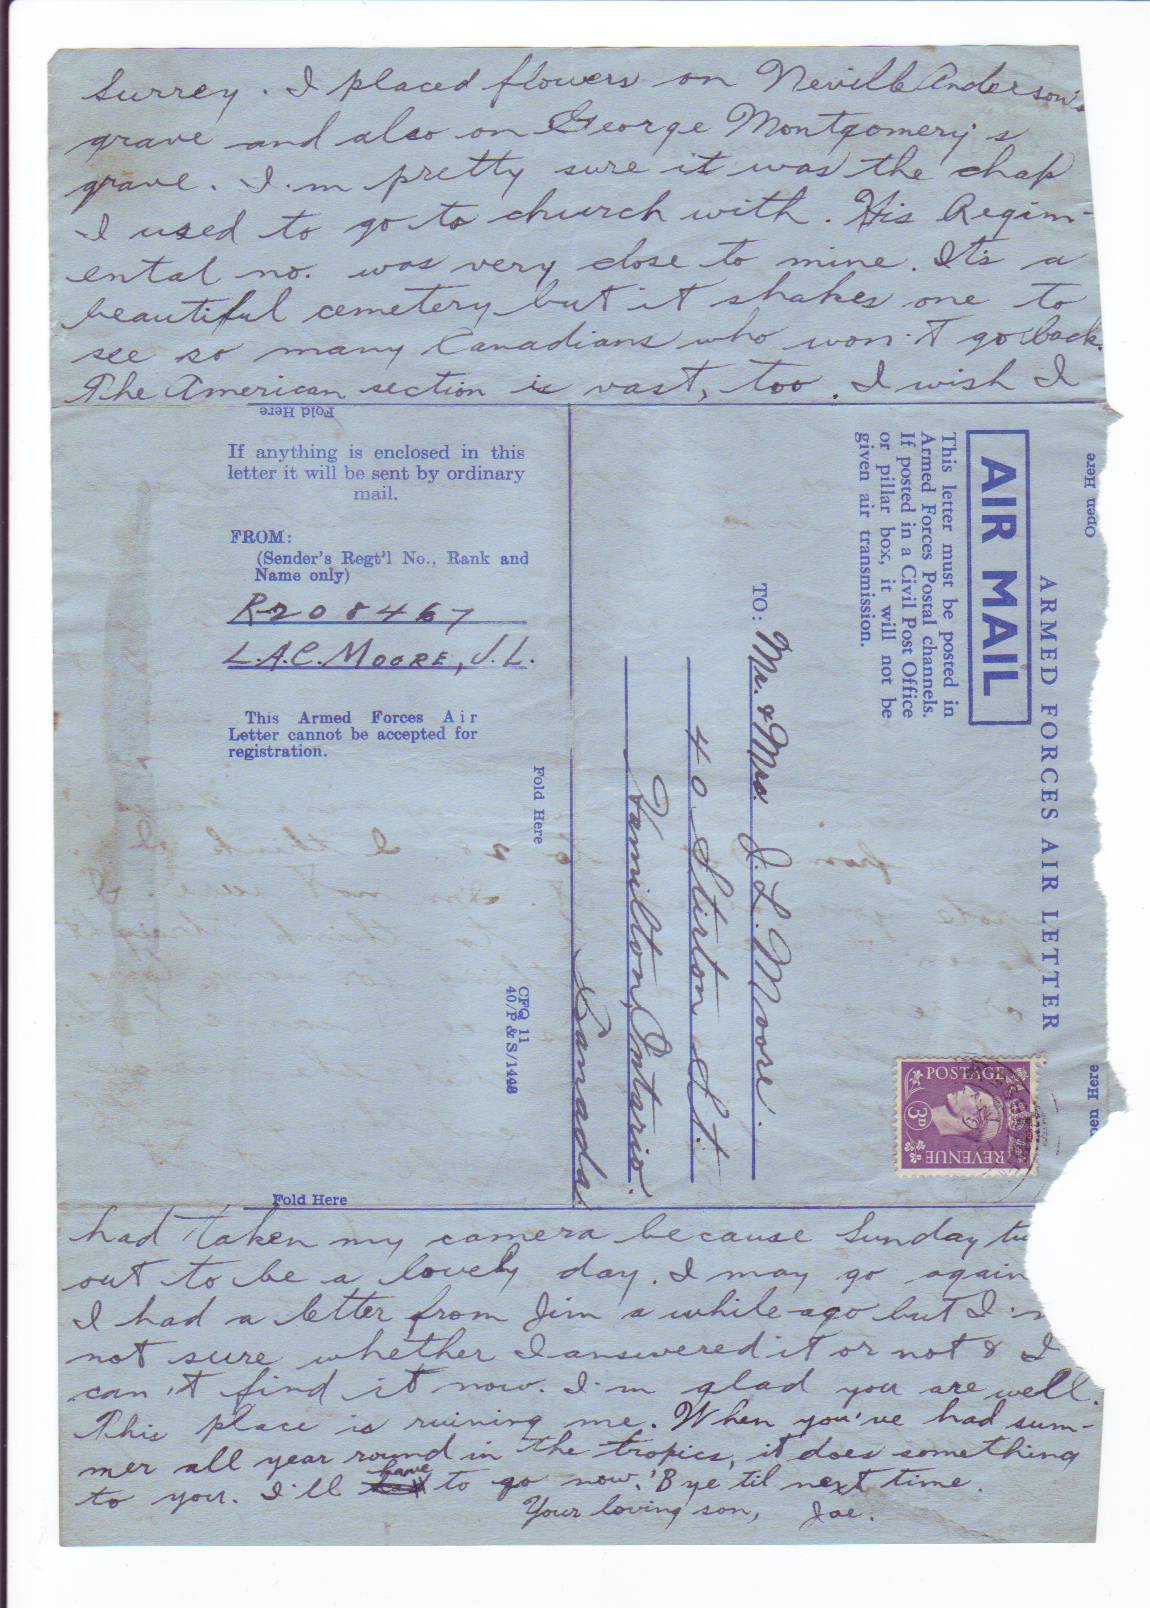 Surrey. I placed flowers on Neville Anderson's
grave and also on George Montgomery's
grave. I'm pretty sure it was the chap
I used to go to church with. His Regim-
ental no. was very close to mine. It's a
beautiful cemetery but it shakes one to
see so many Canadians who won't go back.
The American section is vast, too. I wish I
Fold Here
If anything is enclosed in this
letter it will be sent by ordinary
mail.
FROM:
(Sender's Regt'l No., Rank and
Name only)
R208467
L.A.C. MOORE, J.L.
This Armed Forces Air
Letter cannot be accepted for
registration.
Fold Here
CFQ 11
40/P & S/1448
Open Here
ARMED FORCES AIR LETTER
AIR MAIL
This letter must be posted in
Armed Forces Postal channels.
If posted in a Civil Post Office
or pillar box, it will not be
given air transmission.
TO: Mr. & Mrs. J. L. Moore.
40 Stirton St.
Hamilton, Ontario.
Canada.
POSTAGE
3D
REVENUE
en Here
Fold Here
had taken my camera because Sunday tu
out to be a lovely day. I may go again
I had a letter from Jim a while ago but I'm
not sure whether I answered it or not & I
can't find it now. I'm glad you are well.
This place is ruining me. When you've had sum-
mer all year round in the tropics, it does something
to you. I'll have to go now. 'Bye til next time.
Your loving son, Joe.